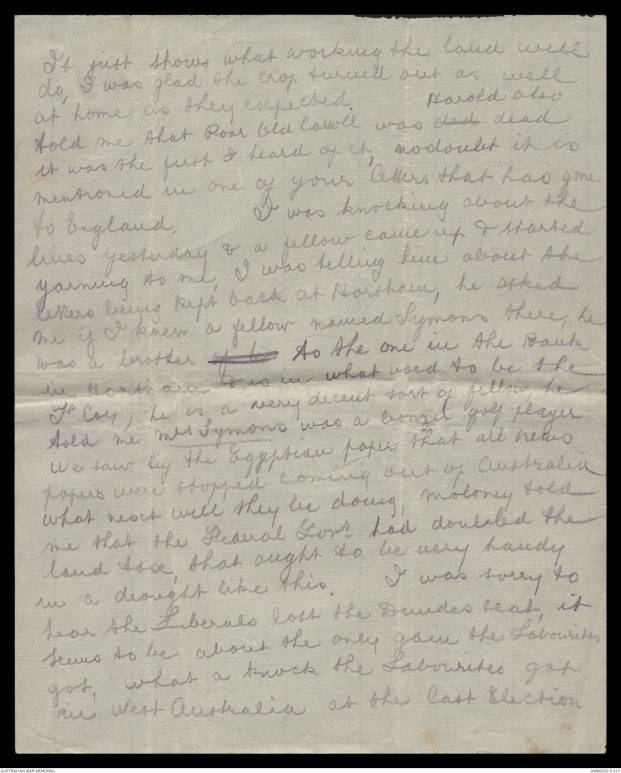 It just shows what working the land will
do, I was glad the crop turned out as well
at home as they expected. Harold also
told me that Poor Old Carroll was ded dead
it was the first I heard of it, nodoubt it is
mentioned in one of your letters that has gone
to England. I was knocking about the
lines yesterday & a fellow came up & started
yarning to me, I was telling him about the
letters being kept back at Horsham, he asked
me if I knew a fellow named Symons there, he
was a brother to the one in the Bank
in Horsham & is in what used to be the
F Coy, he is a very decent sort of fellow, he
told me Mrs Symons was a bonzer golf player
We saw by the Egyptian paper that all news
papers were stopped coming out of Australia
what next will they be doing, moloney told
me that the Federal Govt had doubled the
land tax, that ought to be very handy
in a drought like this. I was sorry to
hear the Liberals lost the Dundas seat, it
seems to be about the only gain the Labourites
got, what a knock the Labourites got
in West Australia at the last Election
AUSTRALIAN WAR MEMORIAL